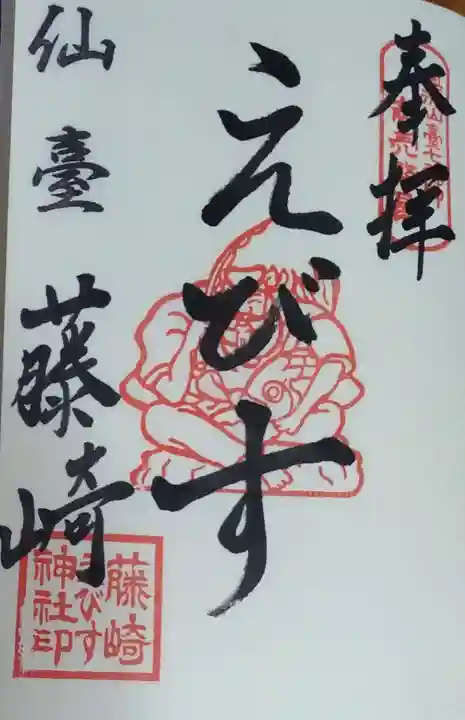 奉拝
えびす
仙臺 藤崎
藤崎
えびす
神社印